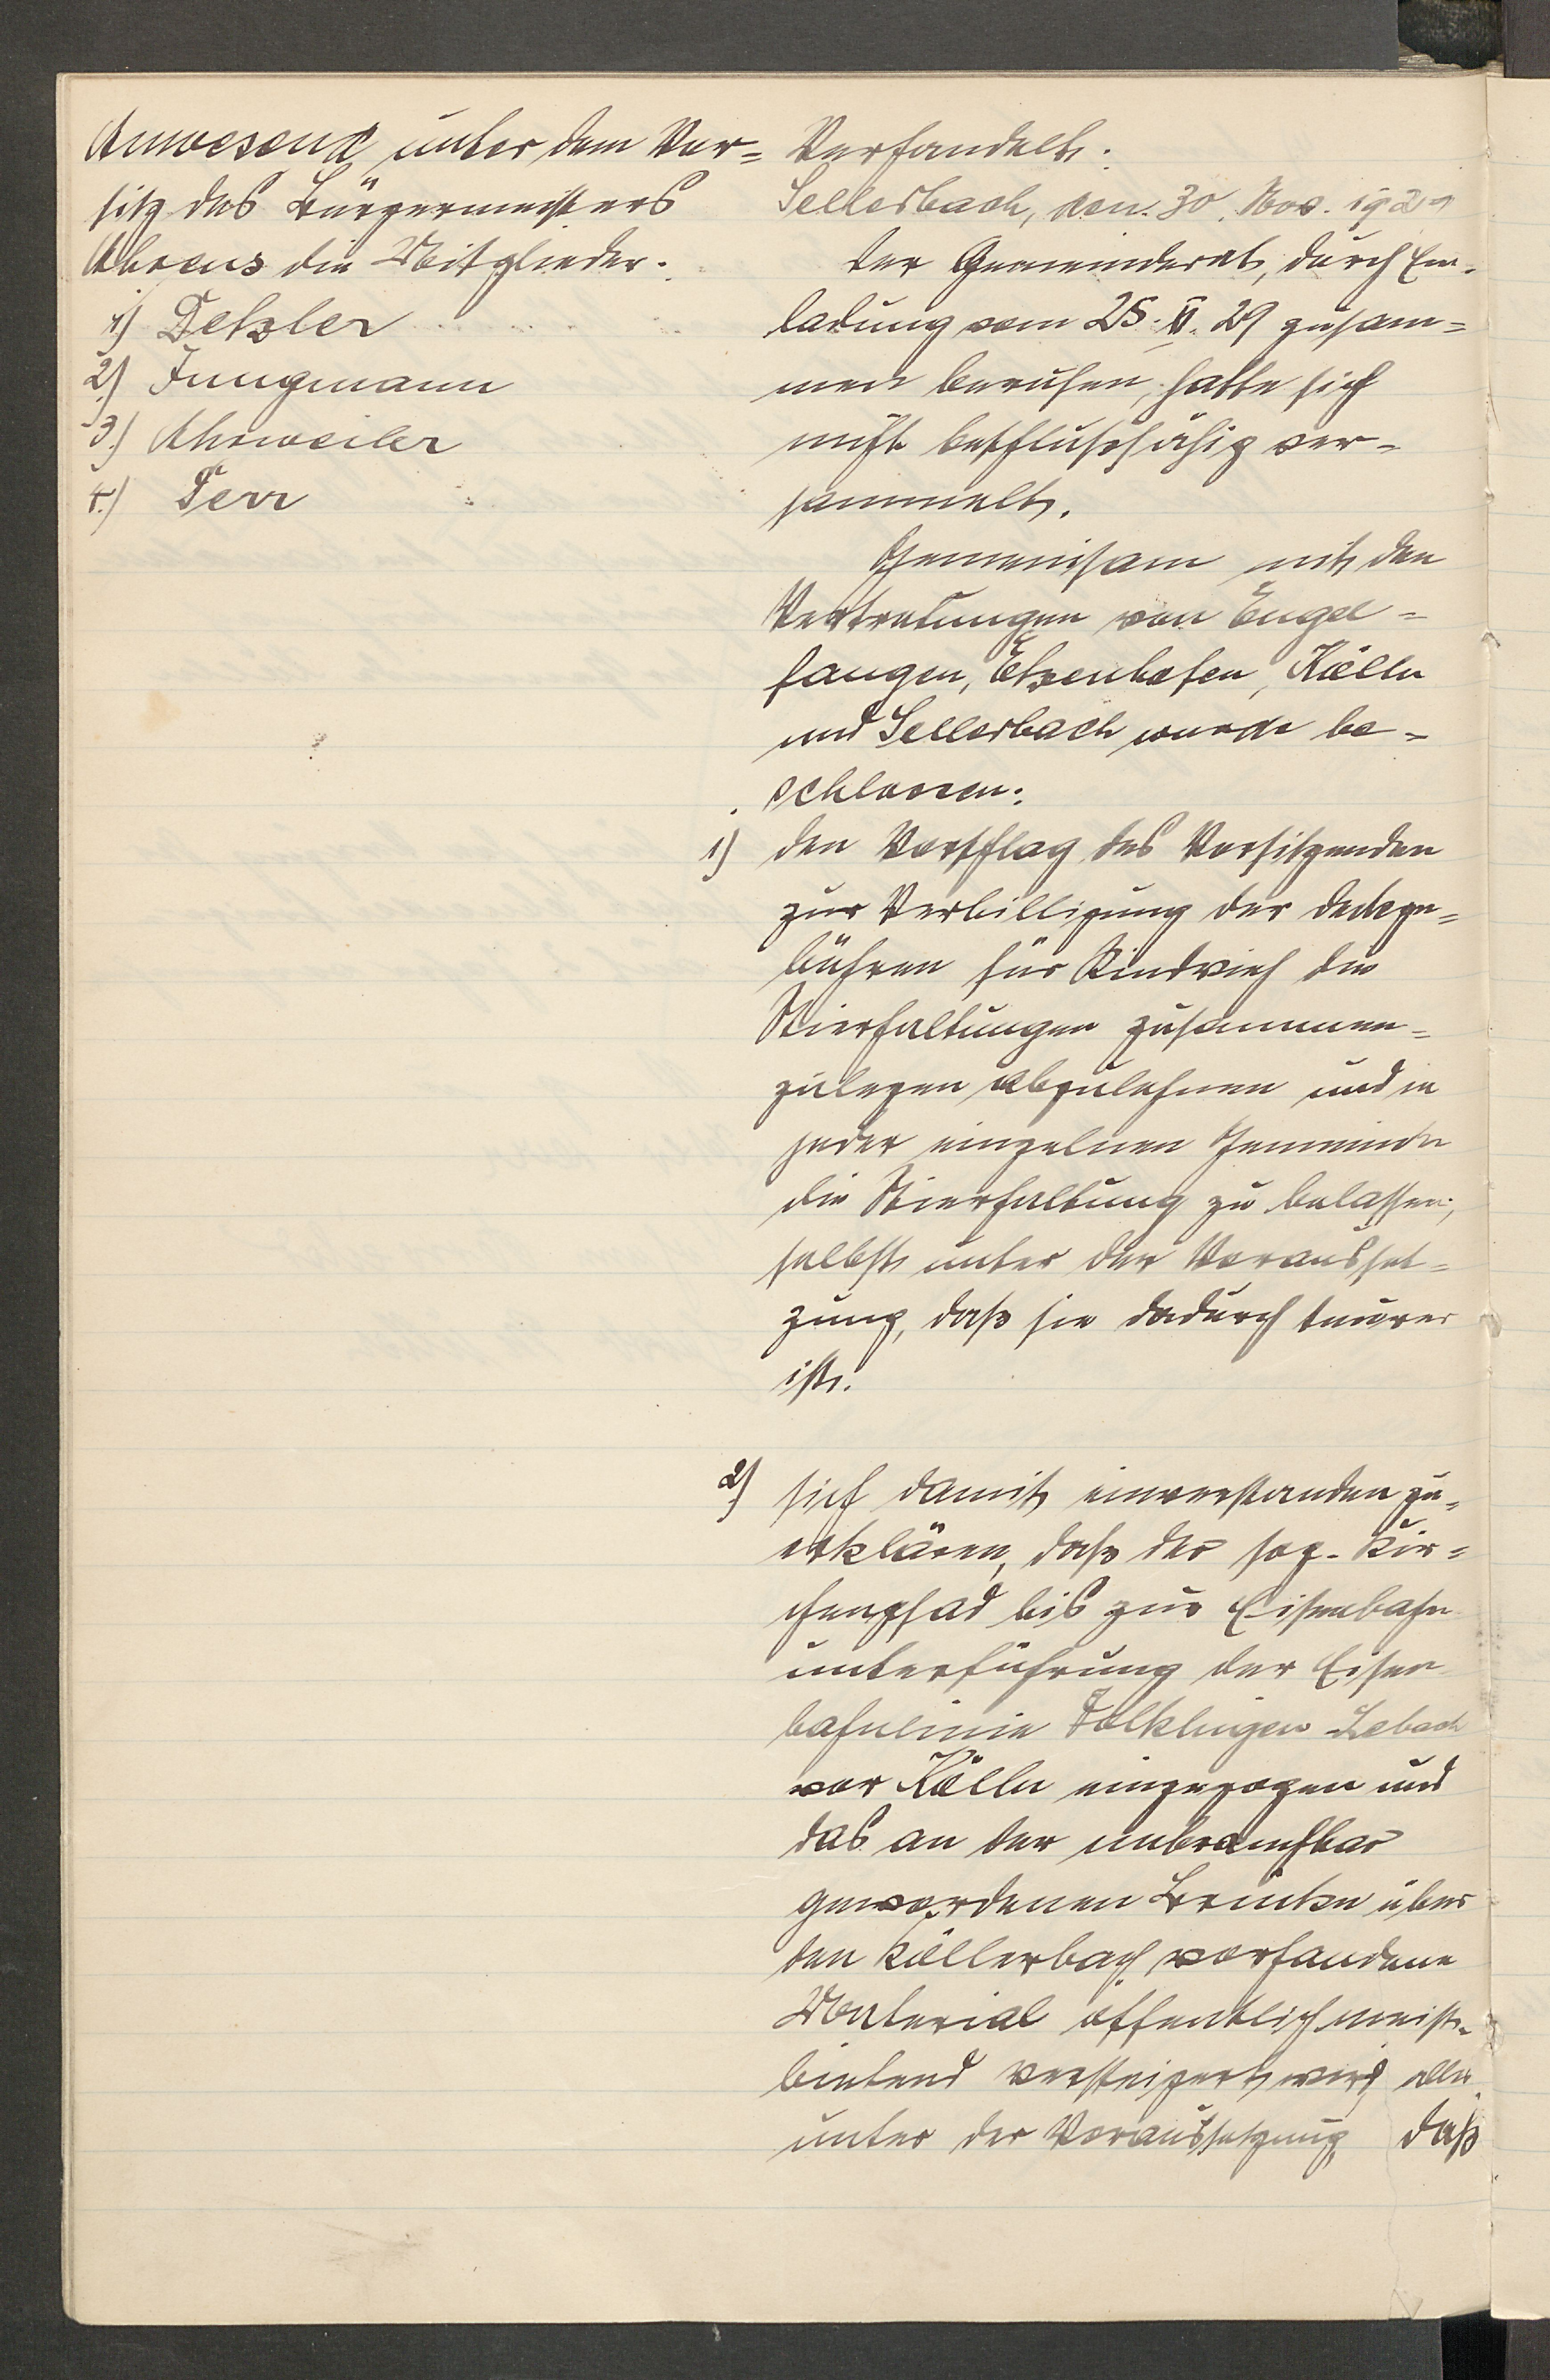 Anwesend unter dem Vor=
sitz des Bürgermeisters
Ahrens die Mitglieder.
1) Detzler
2) Jungmann
3.) Ahrweiler
4.) Ferr
Verhandelt:
Sellerbach, den 30. Nov. 1929
Der Gemeinderat, durch Ein-
ladung vom 25. XI. 29 zusam=
men berufen, hatte sich
nicht beschlußfähig ver-
sammelt.
Gemeinsam mit den
Vertretungen von Engel=
fangen, Etzenhofen, Kölln
und Sellerbach wurde be-
schlossen:
1) den Vorschlag des Vorsitzenden
zur Verbilligung der Deckge=
bühren für Rindvieh die
Stierhaltungen zusammen=
zulegen abzulehnen und in
jeder einzelnen Gemeinde
die Stierhaltung zu belassen,
selbst unter der Vorausset=
zung, daß sie dadurch teurer
ist.
2) sich damit einverstanden zu
erklären, daß der sog. Kir=
chenpfad bis zur Eisenbahn
unterführung der Eisen
bahnlinie Völklingen-Lebach
vor Kölln eingezogen und
das an der unbrauchbar
gewordenen Brücke über
den Köllerbach vorhandene
Material öffentlich meist-
bietend versteigert wird, alles
unter der Voraussetzung, daß